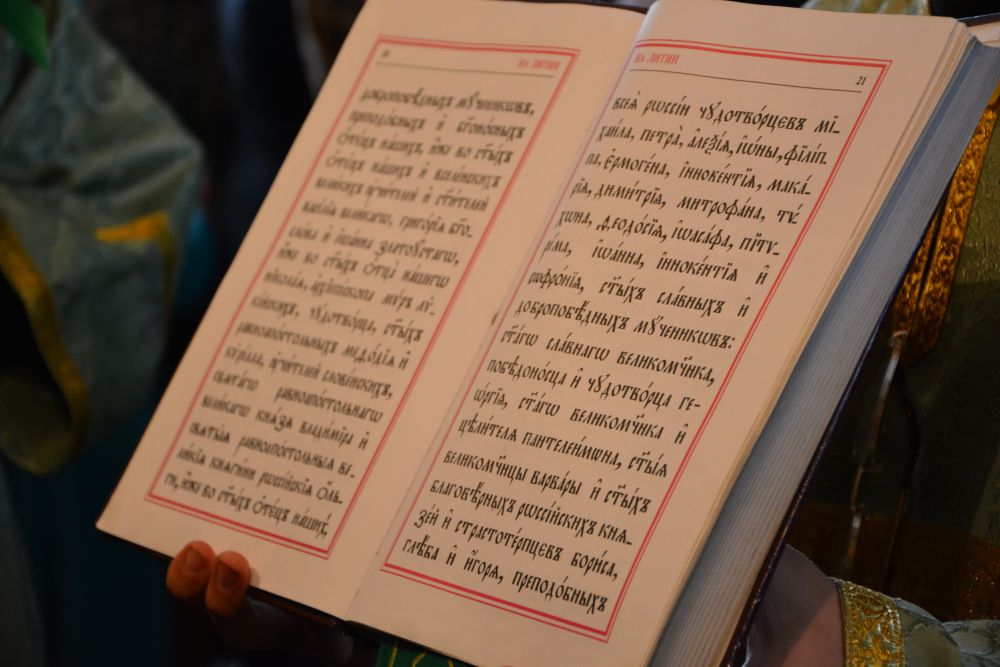 20 НА ЛИТИИ
добропобѣ́дныхъ мч҃никѡвъ,
преподо́бныхъ и҆ бг҃оно́сныхъ
ѻ҆тє́цъ на́шихъ, и҆̀же во ст҃ы́хъ
ѻ҆тє́цъ на́шихъ и҆ вселе́нскихъ
вели́кихъ ᲂу҆чи́телей и҆ ст҃и́телей
васі́лїа вели́кагѡ, григо́рїа бг҃о-
сло́ва и҆ і҆ѡа́нна златоꙋ́стагѡ,
и҆́же во ст҃ы́хъ ѻ҆тц҃а̀ на́шегѡ
нїкола́а, а҆рхїепі́скопа мѵ́ръ лѷ-
кі́йскихъ, чꙋдотво́рца, ст҃ы́хъ
равноапо́стольныхъ меѳо́дїа и҆
кѷрі́лла, ᲂу҆чи́телей слове́нскихъ,
ст҃а́гѡ равноапо́стольнагѡ
вели́кагѡ кнѧ́зѧ влади́мїра и҆
ст҃ы́ѧ равноапо́стольныѧ ве-
ли́кїѧ кнѧги́ни рѡссі́йскїѧ ѻ҆́ль-
ги, и҆̀же во ст҃ы́хъ ѻ҆тє́цъ на́шихъ,
НА ЛИТИИ 21
всеѧ̀ рѡссі́и чꙋдотво́рцевъ мї-
хаи́ла, петра̀, а҆леѯі́а, і҆ѡ́ны, фїлі́п-
па, є҆рмоге́на, і҆нноке́нтїа, мака́-
рїа, дими́трїа, митрофа́на, ті́-
хѡна, ѳеодо́сїа, і҆ѡаса́фа, пїтї-
рі́ма, і҆ѡа́нна, і҆нноке́нтїа и҆
сѡфро́нїа, ст҃ы́хъ сла́вныхъ и҆
добропобѣ́дныхъ мч҃никѡвъ:
ст҃а́гѡ сла́внагѡ великомч҃нка,
побѣдоно́сца и҆ чꙋдотво́рца ге-
ѡ́ргїа, ст҃а́гѡ великомч҃нка и҆
цѣли́телѧ пантелеи́мѡна, ст҃ы́ѧ
великомч҃ницы варва́ры и҆ ст҃ы́хъ
благовѣ́рныхъ рѡссі́йскихъ кнѧ-
зе́й и҆ страстоте́рпцевъ бори́са,
глѣ́ба и҆ и҆́горѧ, преподо́бныхъ